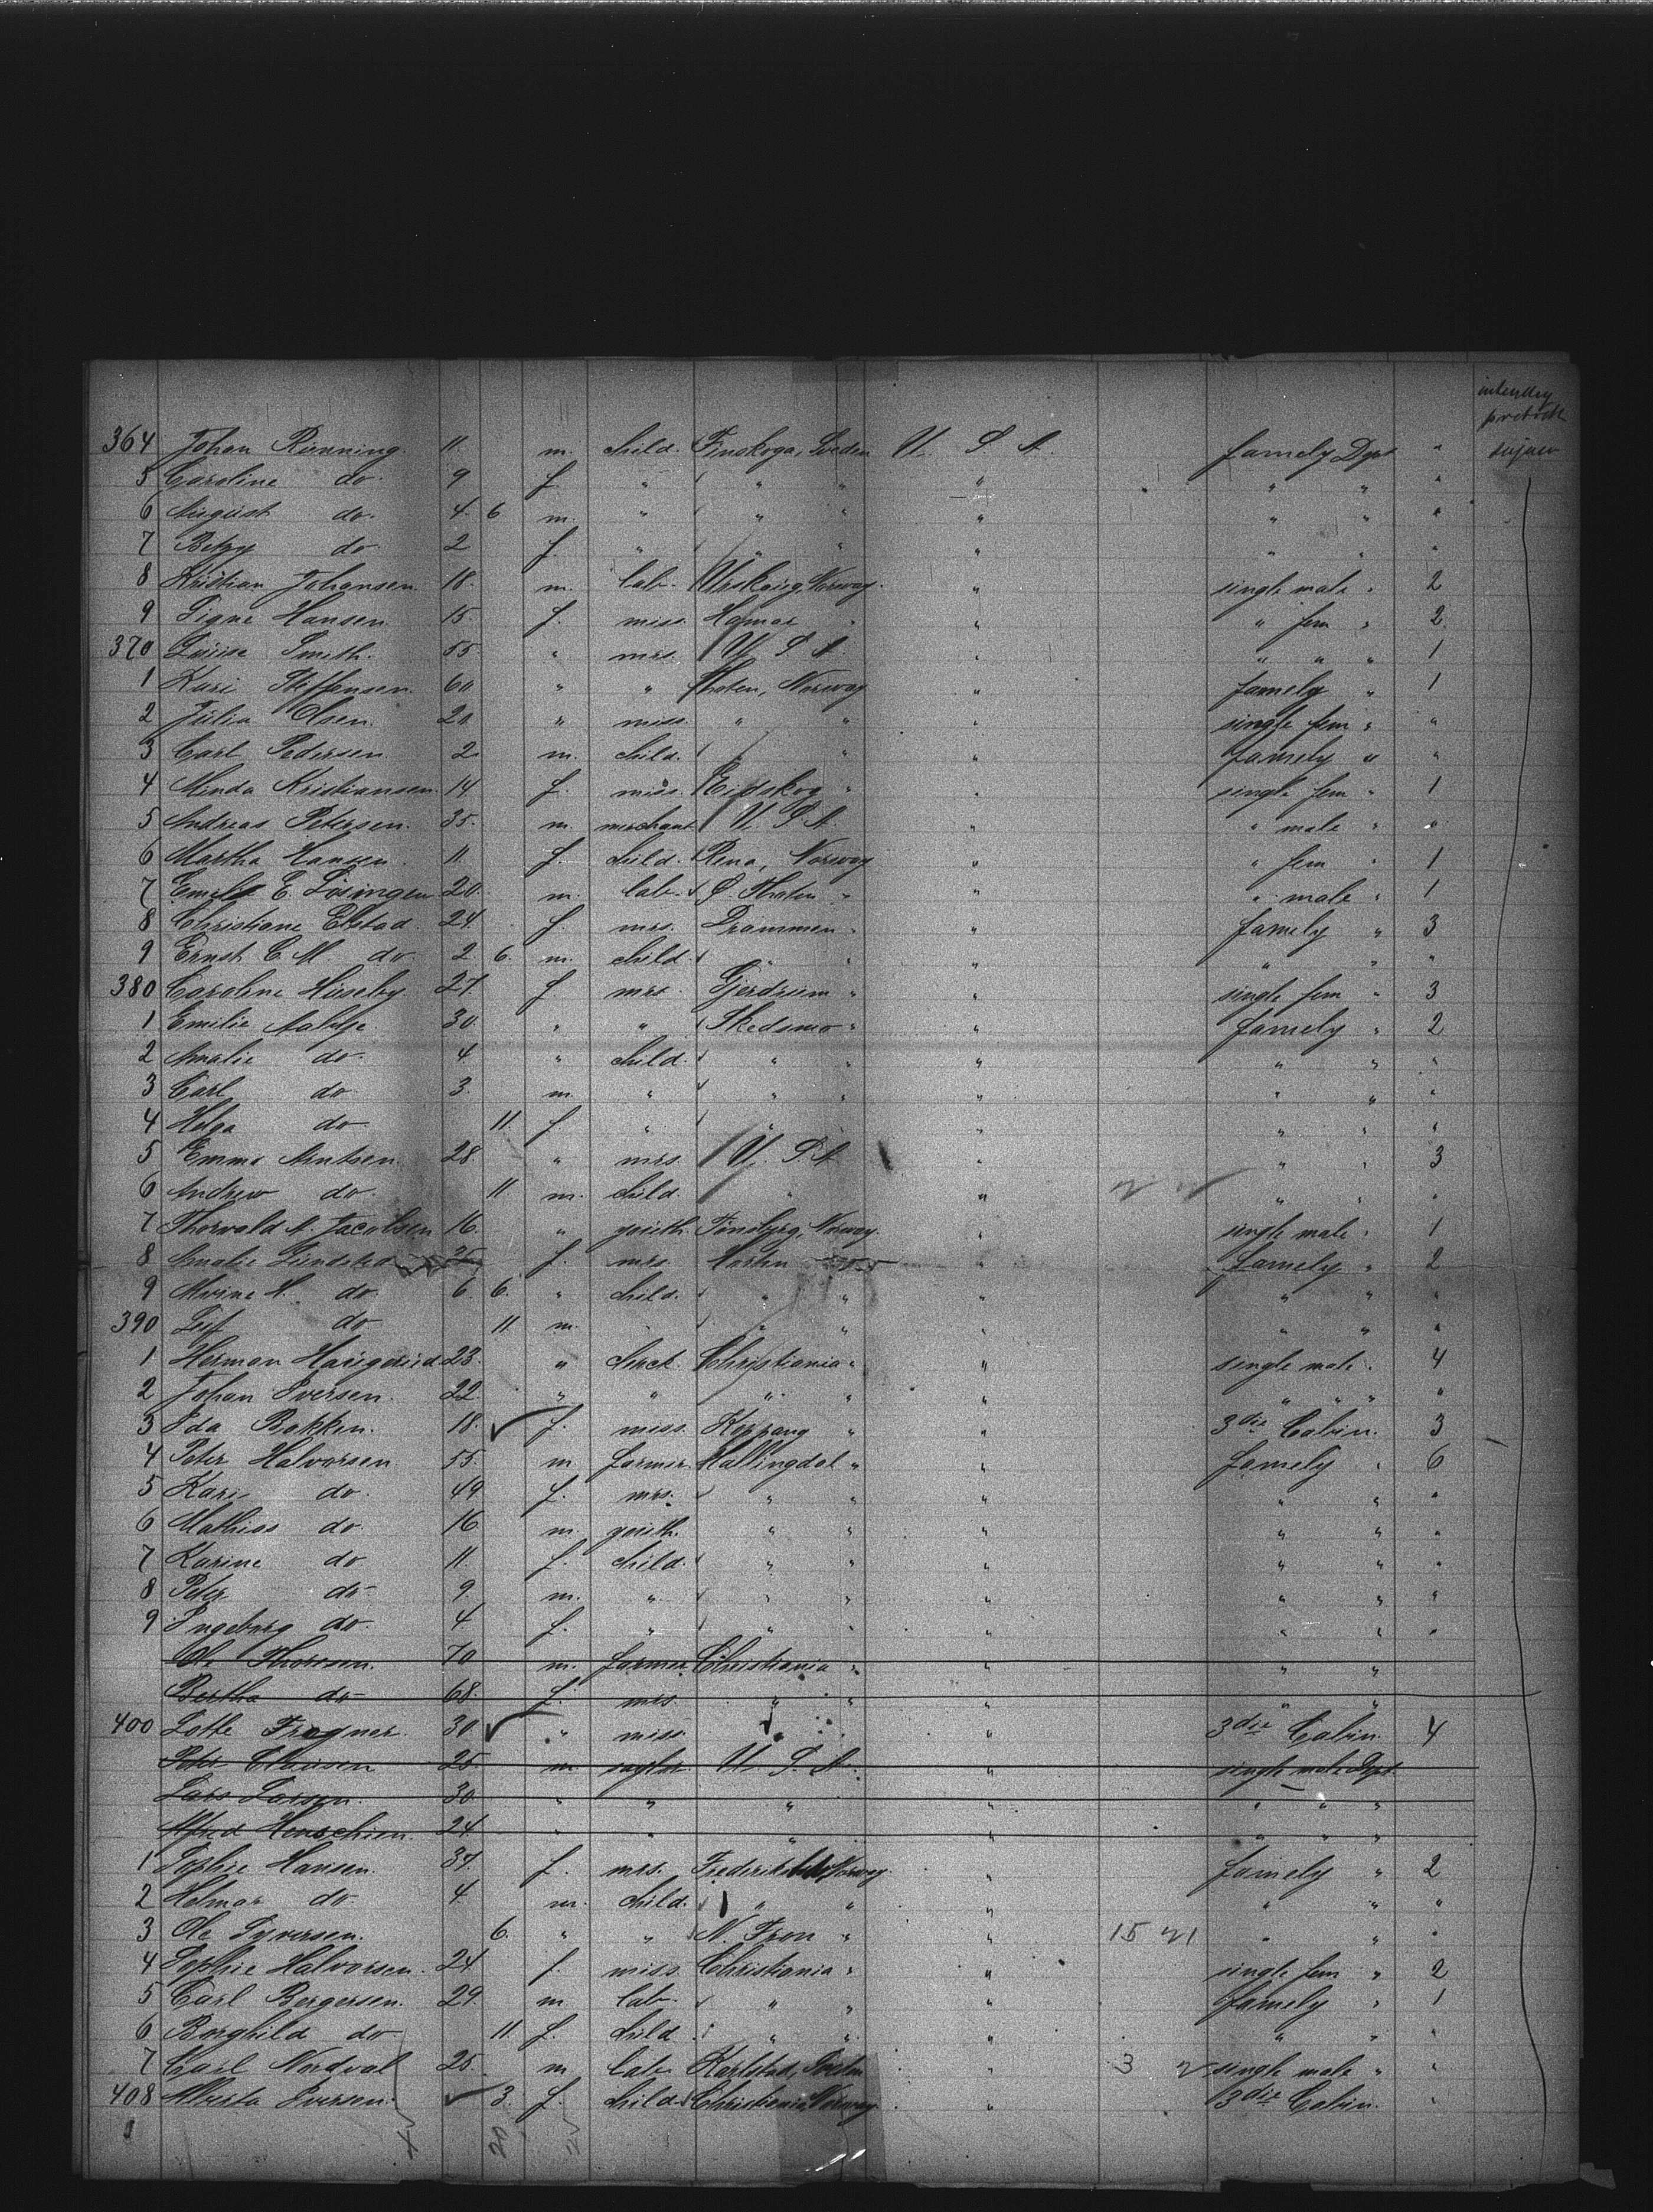 364 Johan Rönning. 11. m. child. Finskoga, Sveden U. S. A. famely Dpt "
5 Caroline do. 9 f. " " " " " " "
6 August do. 4. 6. m. " " " " " " "
7 Betzy do 2 f. " " " " " " "
8 Kristian Johansen. 18. m. lab. Urskoug, Norway. " single male " 2
9 Signe Hansen. 15. f. miss. Hamar " " " fem " 2.
370 Louise Smith. 55. " mrs. U. S. A. " " " " 1
1 Kari Steffensen. 60 " " Thoten, Norway " famely " 1
2 Julia Olsen. 20 " miss. " " " single fem " "
3 Carl Pedersen. 2. m. child. " " famely " "
4 Minda Kristiansen. 14 f. miss. Eidskog " " single fem " 1
5 Andreas Petersen. 35. m. merchant U. S. A. " " male " "
6 Martha Hansen. 11. f. child. Rena, Norway " " fem " 1
7 E. 20. m. lab. Ø. Thoten " " " male " 1
8 Christiane Elstad. 24. f. mrs. Drammen " " famely " 3
9 Ernst C. M do 2 6. m. child. " " " " " "
380 Caroline Huseby. 27. f. mrs. Gjerdrum " " single fem " 3
1 Emilie 30. " " Skedsmo " " famely " 2
2 Amalie do. 4. " child. " " " " " "
3 Carl do 3. m. " " " " " " "
4 Helga do 11. f. " " " " " "
5 Emma Arntsen. 28. " mrs. U. S. A " " " 3
6 Andrew do. 11 m. child " " " " "
7 Thorvald A. Jacobsen 16. " youth. Tönsberg, Norway. " single male " 1
8 Amalie Lundsted 35. f. mrs. Horten " famely " 2
9 do. 6. 6. " child. " " " " " "
390 Leif do. 11. m. " " " " " " "
1 Herman 23. " Christiania " " single male " 4
2 Johan Iversen. 22. " " " " " " " " "
3 Ida Bakken. 18. f. miss. Koppang " " 3die Cabin. 3
4 Peter Halvorsen 55. m. farmer. Hallingdal " " famely " 6
5 Kari do. 49 f. mrs. " " " " " "
6 Mathias do. 16 m. youth. " " " " " "
7 Karine do 11. f. child. " " " " " "
8 Peter do. 9. m. " " " " " " "
9 Ingeborg do. 4 f. " " " " " " "
Ole Thoresen. 70 m. farmer. Christiania " " " "
Bertha do 68. f. mrs. " " " " "
400 Lotte Frogner. 30 " miss. " " " 3die Cabin. 4
Peter Clausen 25. m. U. S. A. " single male Dpt
Lars Larsen. 30 " " " " " " "
Alfred 24. " " " " " " "
1 Sophie Hansen. 37. f. mrs. Norway. " famely " 2
2 Helmar do. 4. m. child. " " " " " "
3 Ole Syversen. 6. " " N. Fron " " 15 21 " " "
4 Sophie Halvorsen. 24 f. miss. Christiania " " single fem " 2
5 Carl Bergersen. 29. m. lab. " " " famely " 1
6 Borghild do 11. f. child. " " " " " "
7 Carl Nordval 25. m lab Karlstad, Sveden " 3 2 single male " "
408 Alberta Iversen. 3. f. child. Christiania, Norway. " 3die Cabin. "